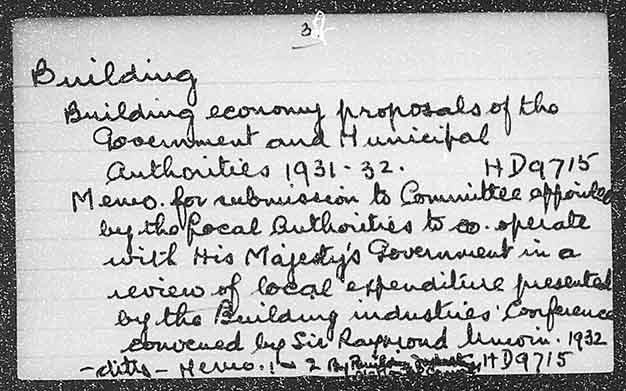 3
Building
Building economy proposals of the
Government and Municipal
Authorities 1931-32. HD9715
Memo. for submission to Committee appointed
by the Local Authorities to co-operate
with His Majesty's Government in a
review of local expenditure presented
by the Building industries' Conference
convened by Sir Raymond Unwin. 1932
- ditto - Memo. 1 - 2 By Building HD9715